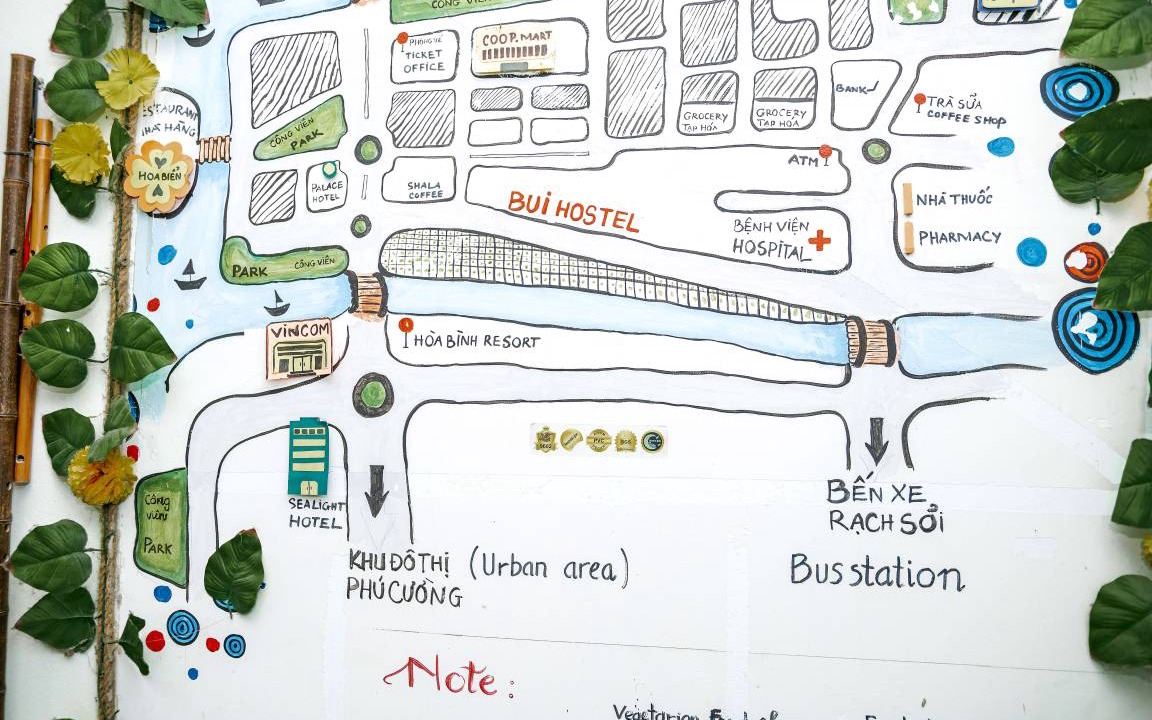 CÔNG VIÊN
PHÒNG VÉ
TICKET
OFFICE
COOP.MART
BANK
GROCERY
TẠP HÓA
GROCERY
TẠP HÓA
TRÀ SỮA
COFFEE SHOP
NHÀ HÀNG
HOA BIỂN
CÔNG VIÊN
PARK
PALACE
HOTEL
SHALA
COFFEE
ATM
BUI HOSTEL
BỆNH VIỆN
HOSPITAL
NHÀ THUỐC
PHARMACY
PARK CÔNG VIÊN
VINCOM
HÒA BÌNH RESORT
SEALIGHT
HOTEL
Công
viên
PARK
KHU ĐÔ THỊ (Urban area)
PHÚ CƯỜNG
BẾN XE
RẠCH SỎI
Bus station
Note:
Vegetarian